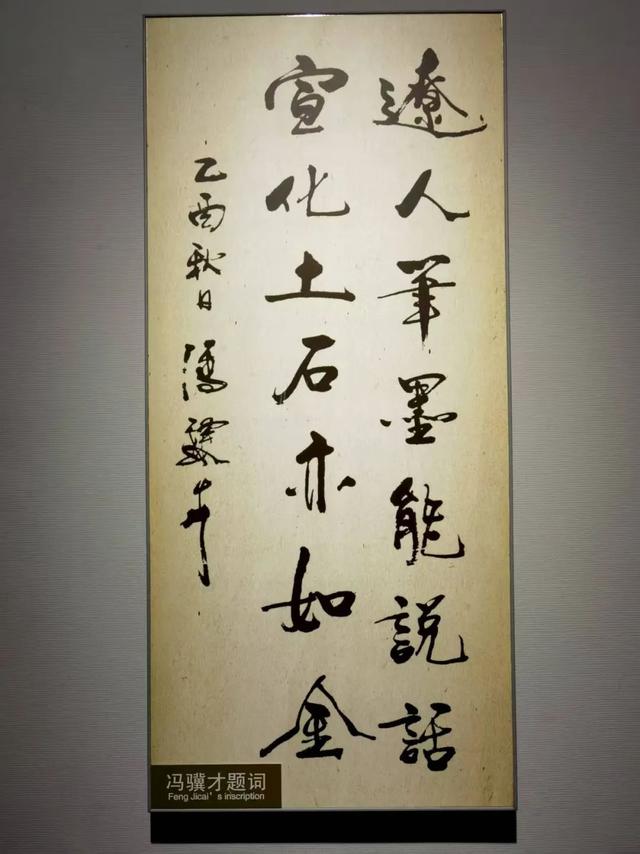 遼人筆墨能説話
宣化土石亦如金
乙酉秋日 馮驥才
冯骥才题词
Feng Jicai's inscription